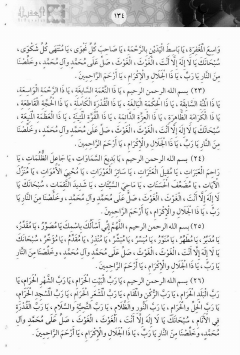 ١٣٤
وَاسِعَ الْمَغْفِرَةِ، يَا بَاسِطَ الْيَدَيْنِ بِالرَّحْمَةِ، يَا صَاحِبَ كُلِّ نَجْوَى، يَا مُنْتَهَى كُلِّ شَكْوَى،
سُبْحَانَكَ يَا لَا إِلَهَ إِلَّا أَنْتَ، الْغَوْثَ، الْغَوْثَ، صَلِّ عَلَى مُحَمَّدٍ وَآلِ مُحَمَّدٍ، وَخَلِّصْنَا
مِنَ النَّارِ يَا رَبِّ، يَا ذَا الْجَلَالِ وَالْإِكْرَامِ، يَا أَرْحَمَ الرَّاحِمِينَ.
(٢٣) بسم الله الرحمن الرحيم، يَا ذَا النِّعْمَةِ السَّابِغَةِ، يَا ذَا الرَّحْمَةِ الْوَاسِعَةِ،
يَا ذَا الْمِنَّةِ السَّابِقَةِ، يَا ذَا الْحِكْمَةِ الْبَالِغَةِ، يَا ذَا الْقُدْرَةِ الْكَامِلَةِ، يَا ذَا الْحُجَّةِ الْقَاطِعَةِ،
يَا ذَا الْكَرَامَةِ الظَّاهِرَةِ، يَا ذَا الْعِزَّةِ الدَّائِمَةِ، يَا ذَا الْقُوَّةِ الْمَتِينَةِ، يَا ذَا الْعَظَمَةِ الْمَنِيعَةِ،
سُبْحَانَكَ يَا لَا إِلَهَ إِلَّا أَنْتَ، الْغَوْثَ، الْغَوْثَ، صَلِّ عَلَى مُحَمَّدٍ وَآلِ مُحَمَّدٍ، وَخَلِّصْنَا
مِنَ النَّارِ يَا رَبِّ، يَا ذَا الْجَلَالِ وَالْإِكْرَامِ، يَا أَرْحَمَ الرَّاحِمِينَ.
(٢٤) بسم الله الرحمن الرحيم، يَا بَدِيعَ السَّمَاوَاتِ، يَا جَاعِلَ الظُّلُمَاتِ، يَا
رَاحِمَ الْعَبَرَاتِ، يَا مُقِيلَ الْعَثَرَاتِ، يَا سَاتِرَ الْعَوْرَاتِ، يَا مُحْيِيَ الْأَمْوَاتِ، يَا مُنْزِلَ
الْآيَاتِ، يَا مُضَعِّفَ الْحَسَنَاتِ، يَا مَاحِيَ السَّيِّئَاتِ، يَا شَدِيدَ النَّقِمَاتِ، سُبْحَانَكَ يَا
لَا إِلَهَ إِلَّا أَنْتَ، الْغَوْثَ، الْغَوْثَ، صَلِّ عَلَى مُحَمَّدٍ وَآلِ مُحَمَّدٍ، وَخَلِّصْنَا مِنَ النَّارِ يَا
رَبِّ، يَا ذَا الْجَلَالِ وَالْإِكْرَامِ، يَا أَرْحَمَ الرَّاحِمِينَ.
(٢٥) بسم الله الرحمن الرحيم، اللَّهُمَّ إِنِّي أَسْأَلُكَ بِاسْمِكَ يَا مُصَوِّرُ، يَا مُقَدِّرُ،
يَا مُدَبِّرُ، يَا مُطَهِّرُ، يَا مُنَوِّرُ، يَا مُيَسِّرُ، يَا مُبَشِّرُ، يَا مُنْذِرُ، يَا مُقَدِّمُ، يَا مُؤَخِّرُ، سُبْحَانَكَ
يَا لَا إِلَهَ إِلَّا أَنْتَ، الْغَوْثَ، الْغَوْثَ، صَلِّ عَلَى مُحَمَّدٍ وَآلِ مُحَمَّدٍ، وَخَلِّصْنَا مِنَ النَّارِ
يَا رَبِّ، يَا ذَا الْجَلَالِ وَالْإِكْرَامِ، يَا أَرْحَمَ الرَّاحِمِينَ.
(٢٦) بسم الله الرحمن الرحيم، يَا رَبَّ الْبَيْتِ الْحَرَامِ، يَا رَبَّ الشَّهْرِ الْحَرَامِ، يَا
رَبَّ الْبَلَدِ الْحَرَامِ، يَا رَبَّ الرُّكْنِ وَالْمَقَامِ، يَا رَبَّ الْمَشْعَرِ الْحَرَامِ، يَا رَبَّ الْمَسْجِدِ الْحَرَامِ،
يَا رَبَّ الْحِلِّ وَالْحَرَامِ، يَا رَبَّ النُّورِ وَالظَّلَامِ، يَا رَبَّ التَّحِيَّةِ وَالسَّلَامِ، يَا رَبَّ الْقُدْرَةِ
فِي الْأَنَامِ، سُبْحَانَكَ يَا لَا إِلَهَ إِلَّا أَنْتَ، الْغَوْثَ، الْغَوْثَ، صَلِّ عَلَى مُحَمَّدٍ وَآلِ
مُحَمَّدٍ، وَخَلِّصْنَا مِنَ النَّارِ يَا رَبِّ، يَا ذَا الْجَلَالِ وَالْإِكْرَامِ، يَا أَرْحَمَ الرَّاحِمِينَ.